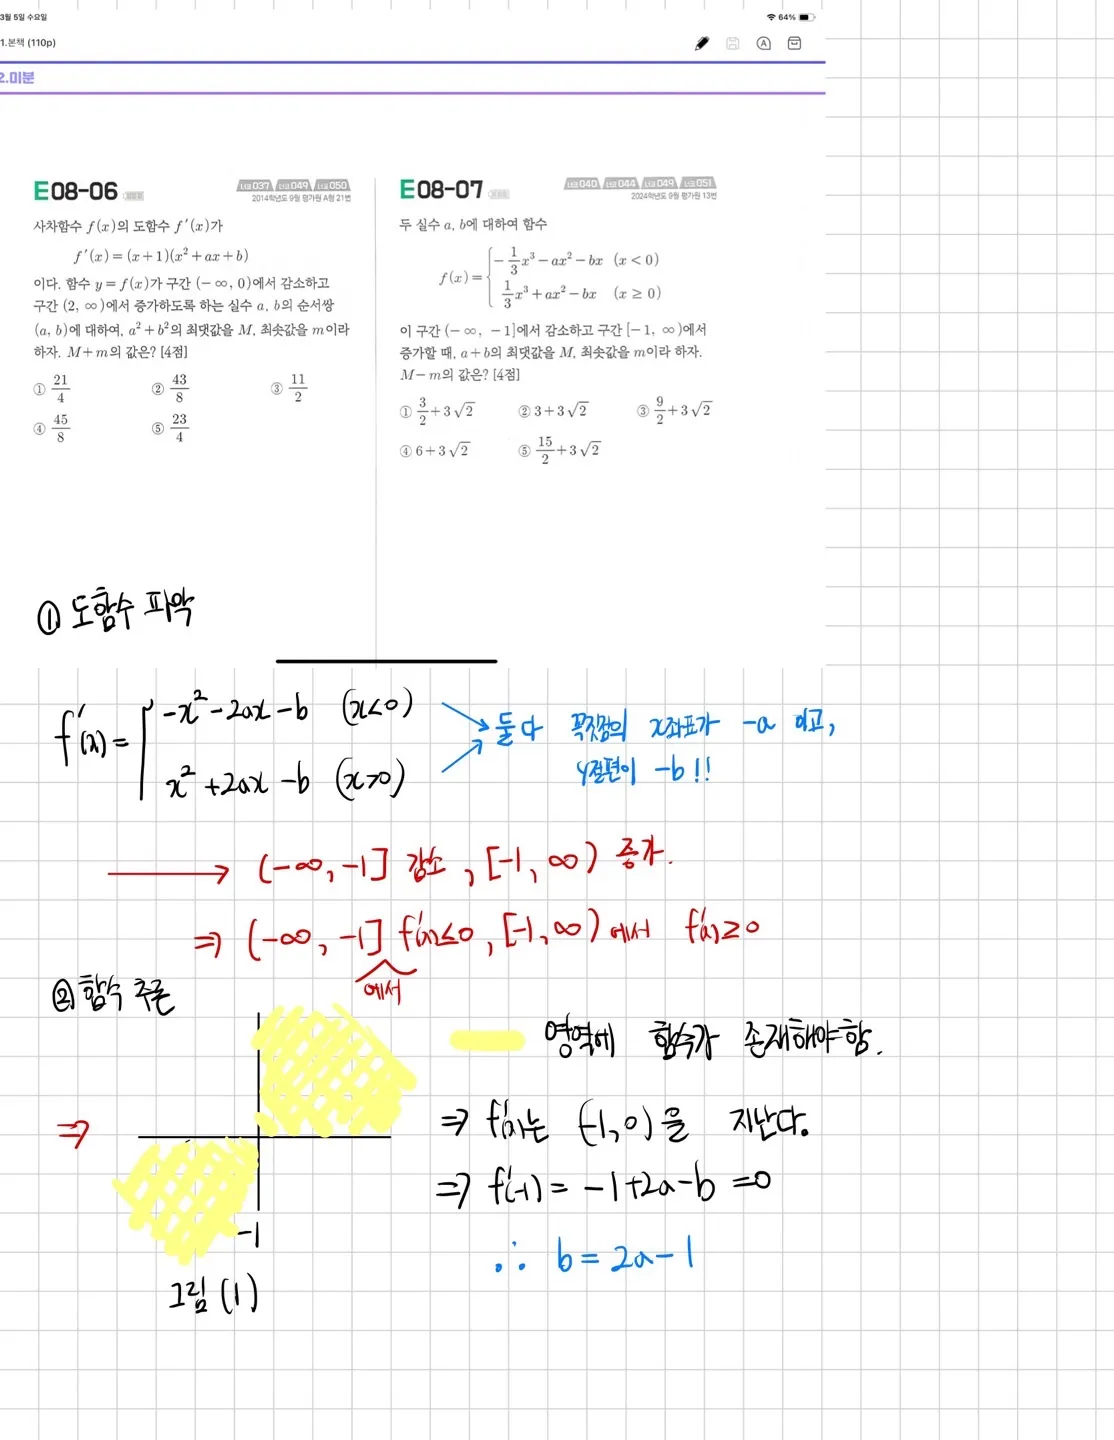 3월 5일 수요일
64%
1.본책 (110p)
2.미분
E08-06
너코 037 너코 049 너코 050
2014학년도 9월 평가원 A형 21번
사차함수 f(x)의 도함수 f'(x)가
f'(x)=(x+1)(x²+ax+b)
이다. 함수 y=f(x)가 구간 (-∞, 0)에서 감소하고
구간 (2, ∞)에서 증가하도록 하는 실수 a, b의 순서쌍
(a, b)에 대하여, a²+b²의 최댓값을 M, 최솟값을 m이라
하자. M+m의 값은? [4점]
① 21/4 ② 43/8 ③ 11/2
④ 45/8 ⑤ 23/4
E08-07
너코 040 너코 044 너코 049 너코 051
2024학년도 9월 평가원 13번
두 실수 a, b에 대하여 함수
f(x)= { -1/3x³-ax²-bx (x<0)
1/3x³+ax²-bx (x≥0)
이 구간 (-∞, -1]에서 감소하고 구간 [-1, ∞)에서
증가할 때, a+b의 최댓값을 M, 최솟값을 m이라 하자.
M-m의 값은? [4점]
① 3/2+3√2 ② 3+3√2 ③ 9/2+3√2
④ 6+3√2 ⑤ 15/2+3√2
① 도함수 파악
f'(x)= { -x²-2ax-b (x<0)
x²+2ax-b (x>0)
둘다 꼭짓점의 x좌표가 -a 이고,
y절편이 -b!!
→ (-∞, -1] 감소, [-1, ∞) 증가.
⇒ (-∞, -1] 에서 f'(x)≤0, [-1, ∞)에서 f'(x)≥0
② 함수 추론
영역에 함수가 존재해야함.
⇒ f'(x)는 (-1, 0)을 지난다.
⇒ f'(-1)= -1+2a-b=0
∴ b=2a-1
⇒
-1
그림 (1)